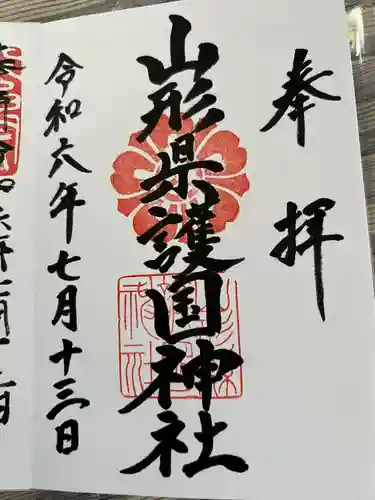 奉拝
山形県護国神社
令和六年七月十三日